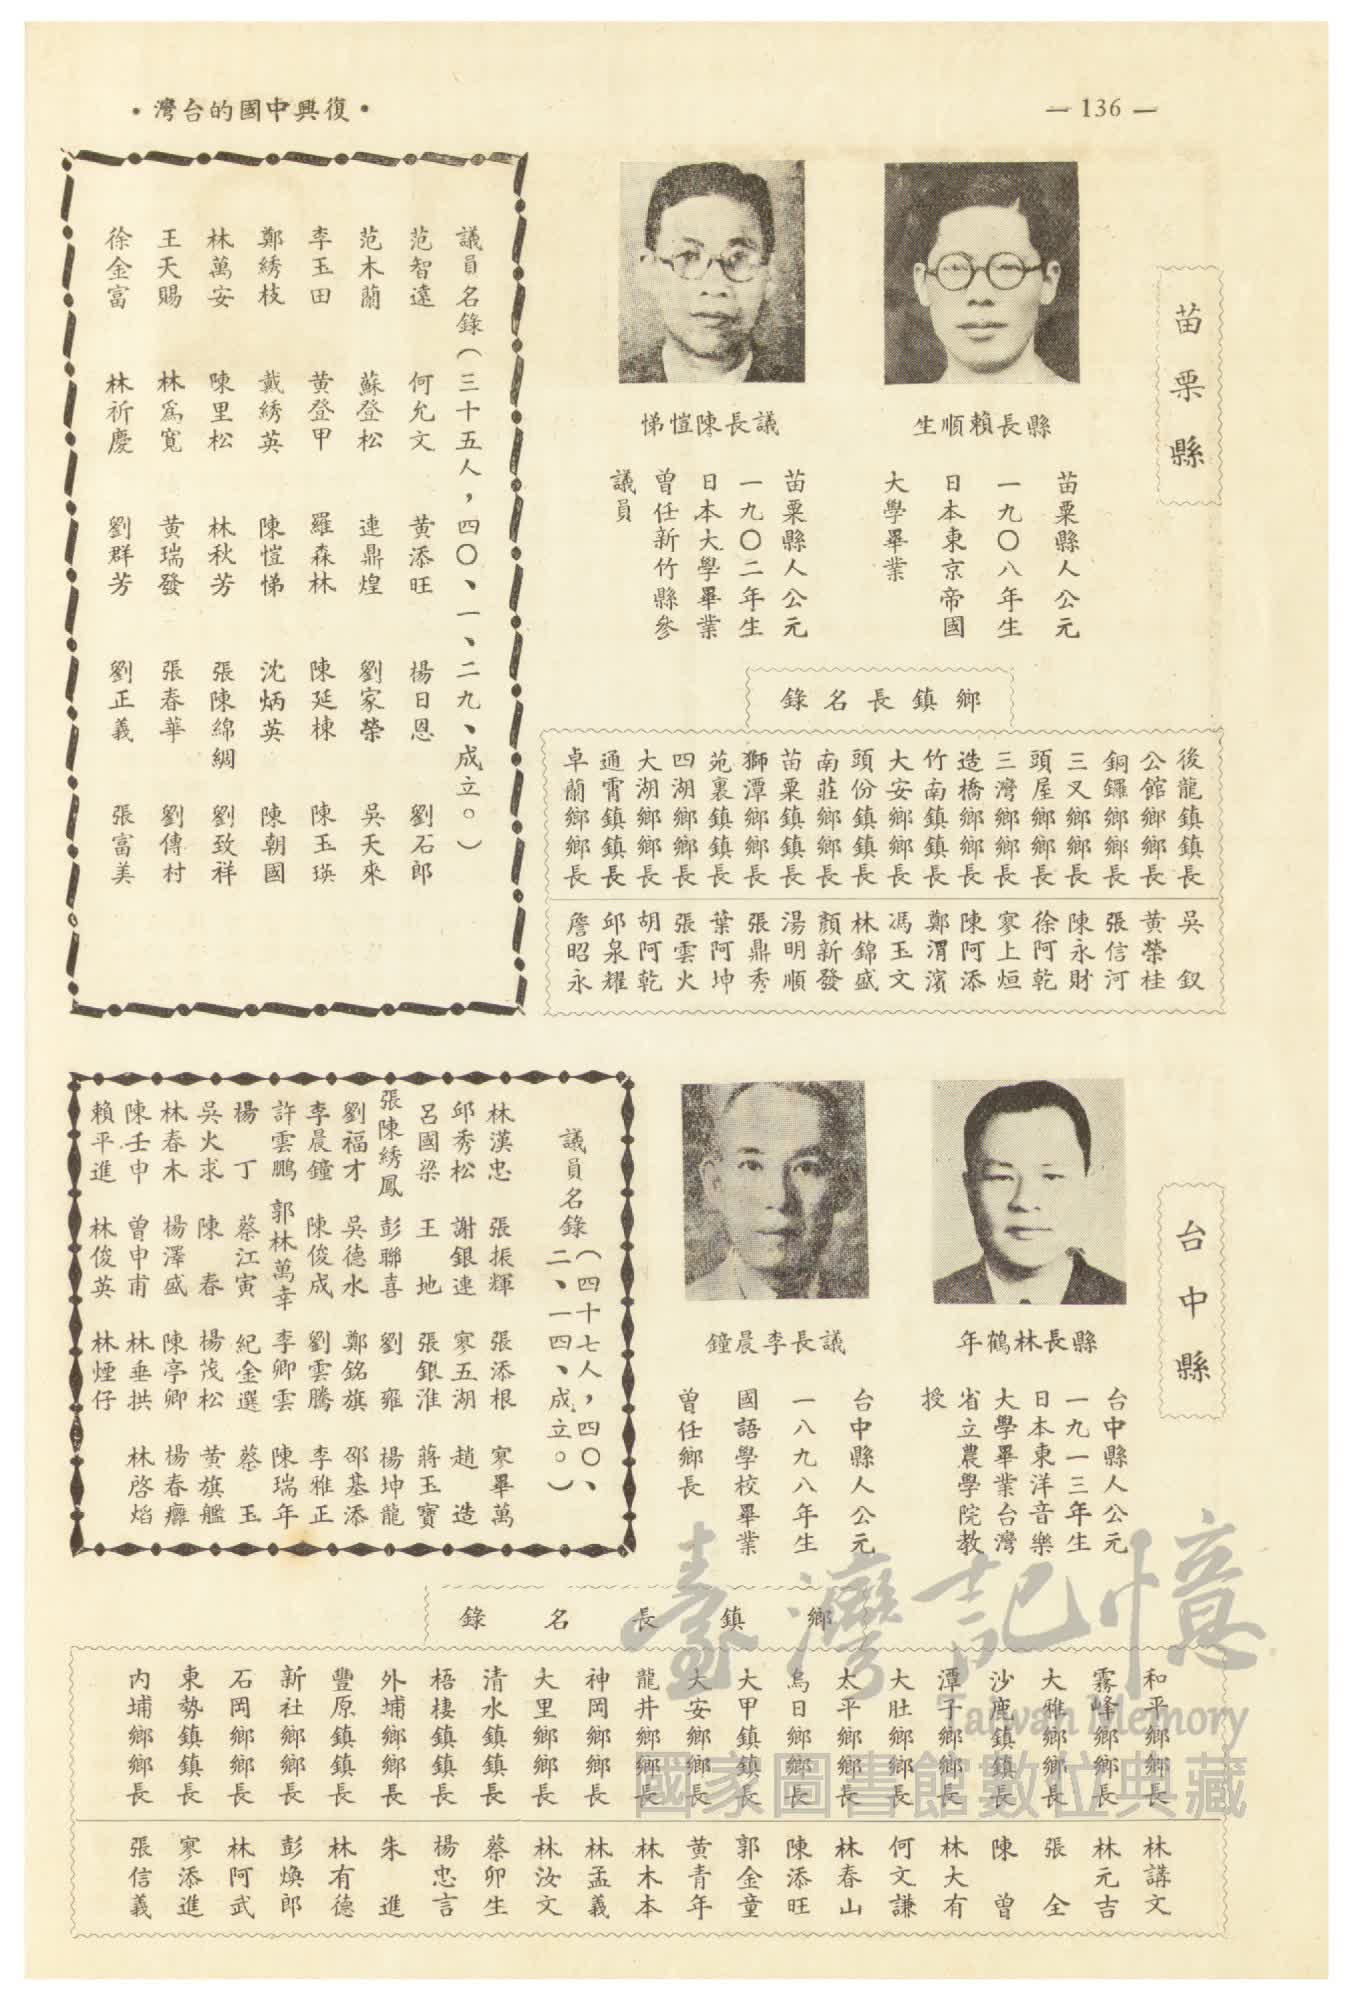 •復興中國的台灣•
— 136 —
苗栗縣
縣長賴順生
苗栗縣人公元
一九〇八年生
日本東京帝國
大學畢業
議長陳愷悌
苗栗縣人公元
一九〇二年生
日本大學畢業
曾任新竹縣參
議員
鄉鎮長名錄
後龍鎮鎮長 吳釵
公館鄉鄉長 黃榮桂
銅鑼鄉鄉長 張信河
三叉鄉鄉長 陳永財
頭屋鄉鄉長 徐阿乾
三灣鄉鄉長 寥上烜
造橋鄉鄉長 陳阿添
竹南鎮鎮長 鄭渭濱
大安鄉鄉長 馮玉文
頭份鎮鎮長 林錦盛
南莊鄉鄉長 顏新發
苗栗鎮鎮長 湯明順
獅潭鄉鄉長 張鼎秀
苑裏鎮鎮長 葉阿坤
四湖鄉鄉長 張雲火
大湖鄉鄉長 胡阿乾
通霄鎮鎮長 邱泉耀
卓蘭鄉鄉長 詹昭永
議員名錄（三十五人，四〇、一、二九、成立。）
范智遠 何允文 黃添旺 楊日恩 劉石郎
范木蘭 蘇登松 連鼎煌 劉家榮 吳天來
李玉田 黃登甲 羅森林 陳延棟 陳玉瑛
鄭綉枝 戴綉英 陳愷悌 沈炳英 陳朝國
林萬安 陳里松 林秋芳 張陳綿綢 劉致祥
王天賜 林為寬 黃瑞發 張春華 劉傳村
徐金富 林祈慶 劉群芳 劉正義 張富美
台中縣
縣長林鶴年
台中縣人公元
一九一三年生
日本東洋音樂
大學畢業台灣
省立農學院教
授
議長李晨鐘
台中縣人公元
一八九八年生
國語學校畢業
曾任鄉長
議員名錄（四十七人，四〇、
二、一四、成立。）
林漢忠 張振輝 張添根 寥畢萬
邱秀松 謝銀連 寥五湖 趙造
呂國梁 王地 張銀淮 蔣玉寶
張陳綉鳳 彭聯喜 劉雍 楊坤龍
劉福才 吳德水 鄭銘旗 邵基添
李晨鐘 陳俊成 劉雲騰 李雅正
許雲鵬 郭林萬幸 李卿雲 陳瑞年
楊丁 蔡江寅 紀金選 蔡玉
吳火求 陳春 楊茂松 黃旗艦
林春木 楊澤盛 陳亭卿 楊春癨
陳壬申 曾申甫 林垂拱 林啓焰
賴平進 林俊英 林煙仔
鄉鎮長名錄
和平鄉鄉長 林講文
霧峰鄉鄉長 林元吉
大雅鄉鄉長 張全
沙鹿鎮鎮長 陳曾
潭子鄉鄉長 林大有
大肚鄉鄉長 何文謙
太平鄉鄉長 林春山
烏日鄉鄉長 陳添旺
大甲鎮鎮長 郭金童
大安鄉鄉長 黃青年
龍井鄉鄉長 林木本
神岡鄉鄉長 林孟義
大里鄉鄉長 林汝文
清水鎮鎮長 蔡卯生
梧棲鎮鎮長 楊忠言
外埔鄉鄉長 朱進
豐原鎮鎮長 林有德
新社鄉鄉長 彭煥郎
石岡鄉鄉長 林阿武
東勢鎮鎮長 寥添進
內埔鄉鄉長 張信義
臺灣記憶
Taiwan Memory
國家圖書館數位典藏